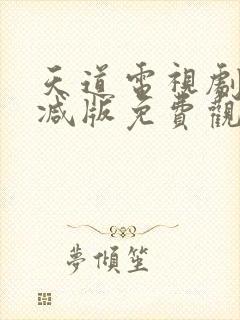 天道電視劇
減版免費觀
夢傾笙